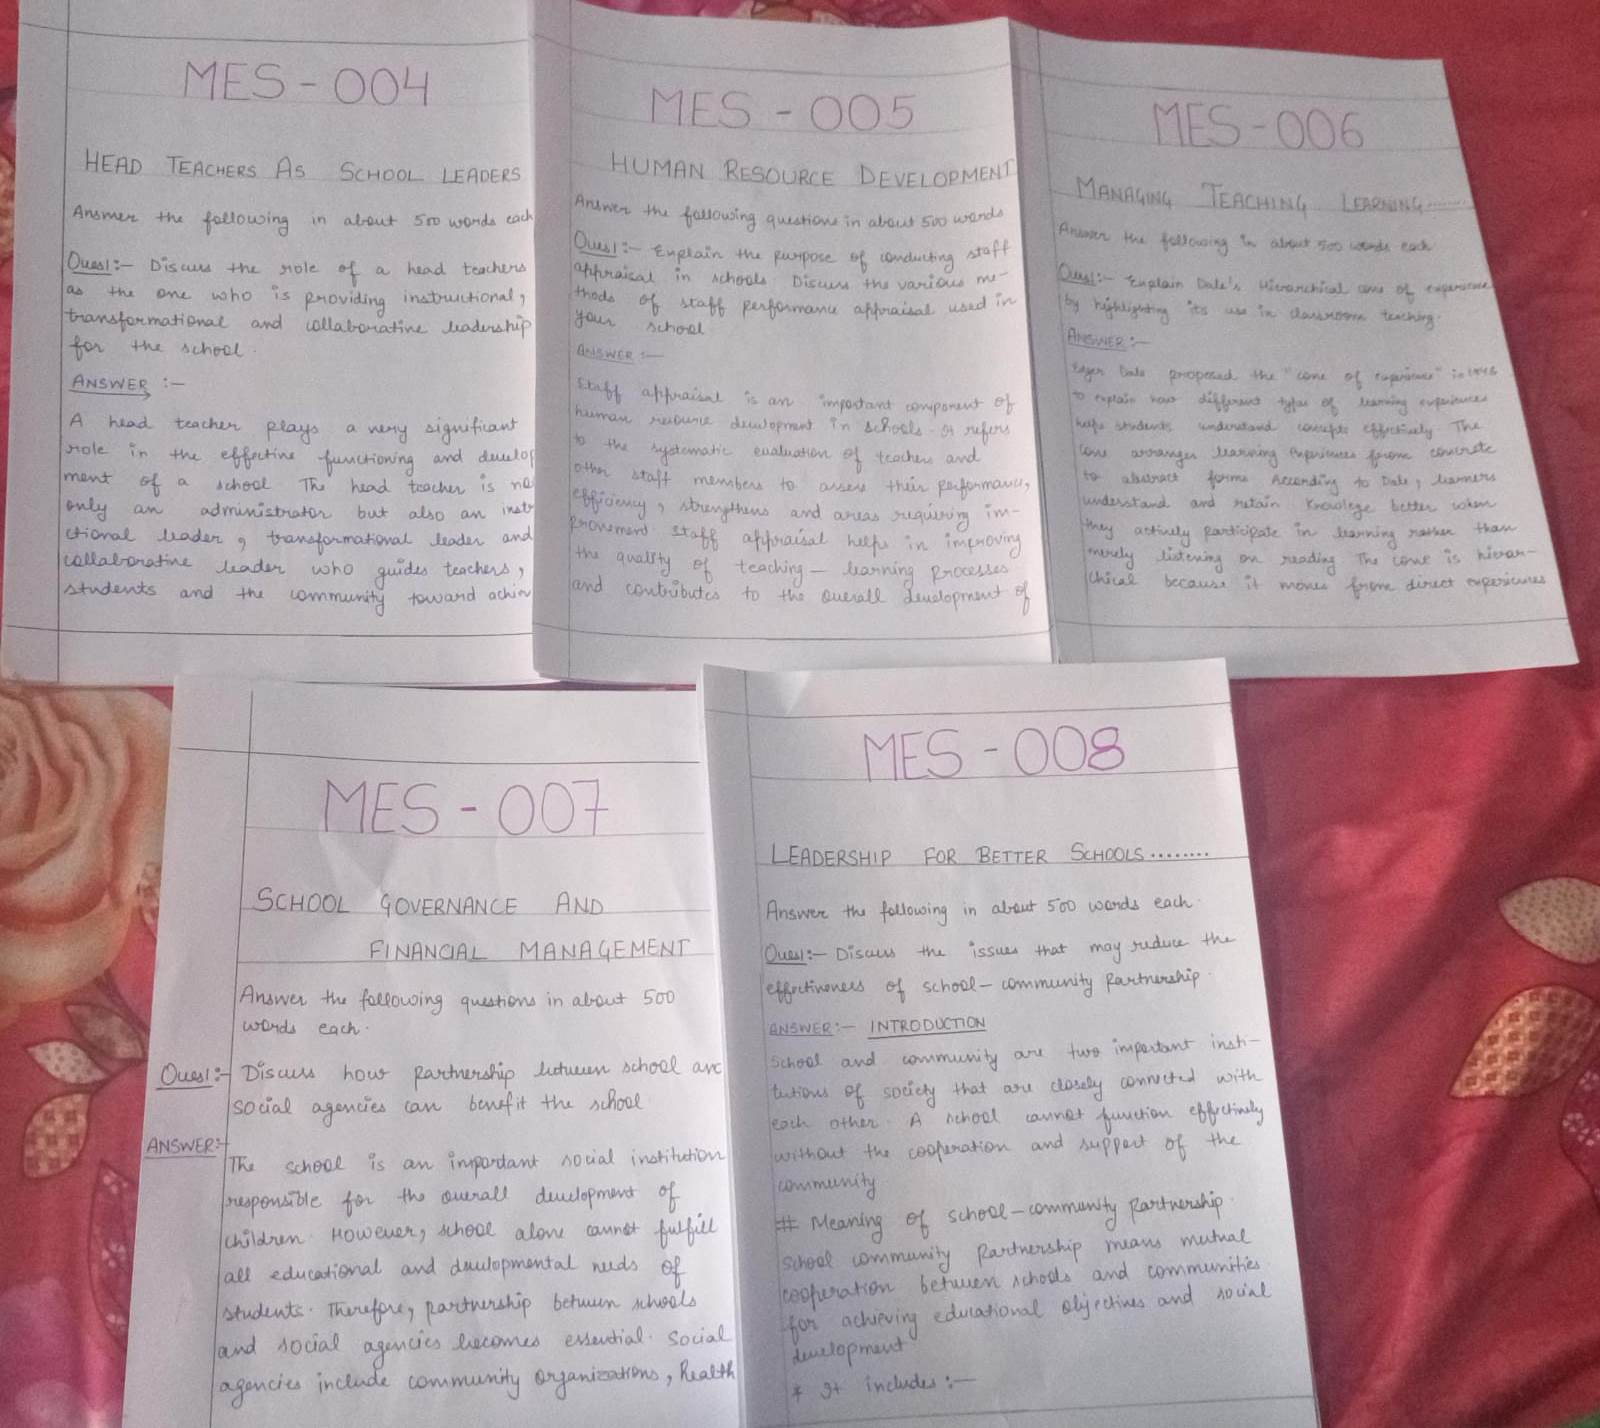 MES - 004
HEAD TEACHERS AS SCHOOL LEADERS
Answer the following in about 500 words each
Ques1:- Discuss the role of a head teachers
as the one who is providing instructional,
transformational and collaborative leadership
for the school.
ANSWER :-
A head teacher plays a very significant
role in the effective functioning and develop
ment of a school The head teacher is no
only an administrator but also an instr
ctional leader, transformational leader and
collaborative leader who guides teachers,
students and the community toward achiev
MES - 005
HUMAN RESOURCE DEVELOPMENT
Answer the following questions in about 500 words
Ques1:- Explain the purpose of conducting staff
appraisal in schools. Discuss the various me-
thods of staff performance appraisal used in
your school
ANSWER :-
Staff appraisal is an important component of
human resource development in schools. It refers
to the systematic evaluation of teachers and
other staff members to assess their performance,
efficiency, strengthens and areas requiring im-
provement. Staff appraisal helps in improving
the quality of teaching - learning processes
and contributes to the overall development of
MES-006
MANAGING TEACHING LEARNING........
Answer the following in about 500 words each
Ques1:- Explain Dale's Hierarchical cone of experience
by highlighting its use in classroom teaching.
ANSWER :-
Edger Dale proposed the "cone of experience" in
to explain how different types of learning experiences
helps students understand concepts effectively. The
cone arranges learning experiences from concrete
to abstract forms According to Dale, learners
understand and retain knowlege better when
they actively participate in learning rather than
merely listening or reading The cone is hierar-
chical because it moves from direct experiences
MES - 007
SCHOOL GOVERNANCE AND
FINANCIAL MANAGEMENT
Answer the following questions in about 500
words each.
Ques1:- Discuss how partnership between school and
social agencies can benefit the school
ANSWER:-
The school is an important social institution
responsible for the overall development of
children. However, school alone cannot fulfill
all educational and developmental needs of
students. Therefore, partnership between schools
and social agencies becomes essential. Social
agencies include community organizations, health
MES - 008
LEADERSHIP FOR BETTER SCHOOLS........
Answer the following in about 500 words each.
Ques1:- Discuss the issues that may reduce the
effectiveness of school-community partnership.
ANSWER:- INTRODUCTION
School and community are two important insti-
tutions of society that are closely connected with
each other. A school cannot function effectively
without the cooperation and support of the
community.
# Meaning of school-community partnership.
School community partnership means mutual
cooperation between schools and communities
for achieving educational objectives and social
development.
* It includes:-